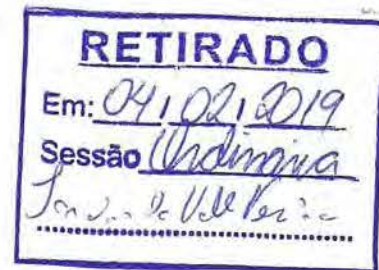 RETIRADO
Em: 04/02/2019
Sessão Ordinária